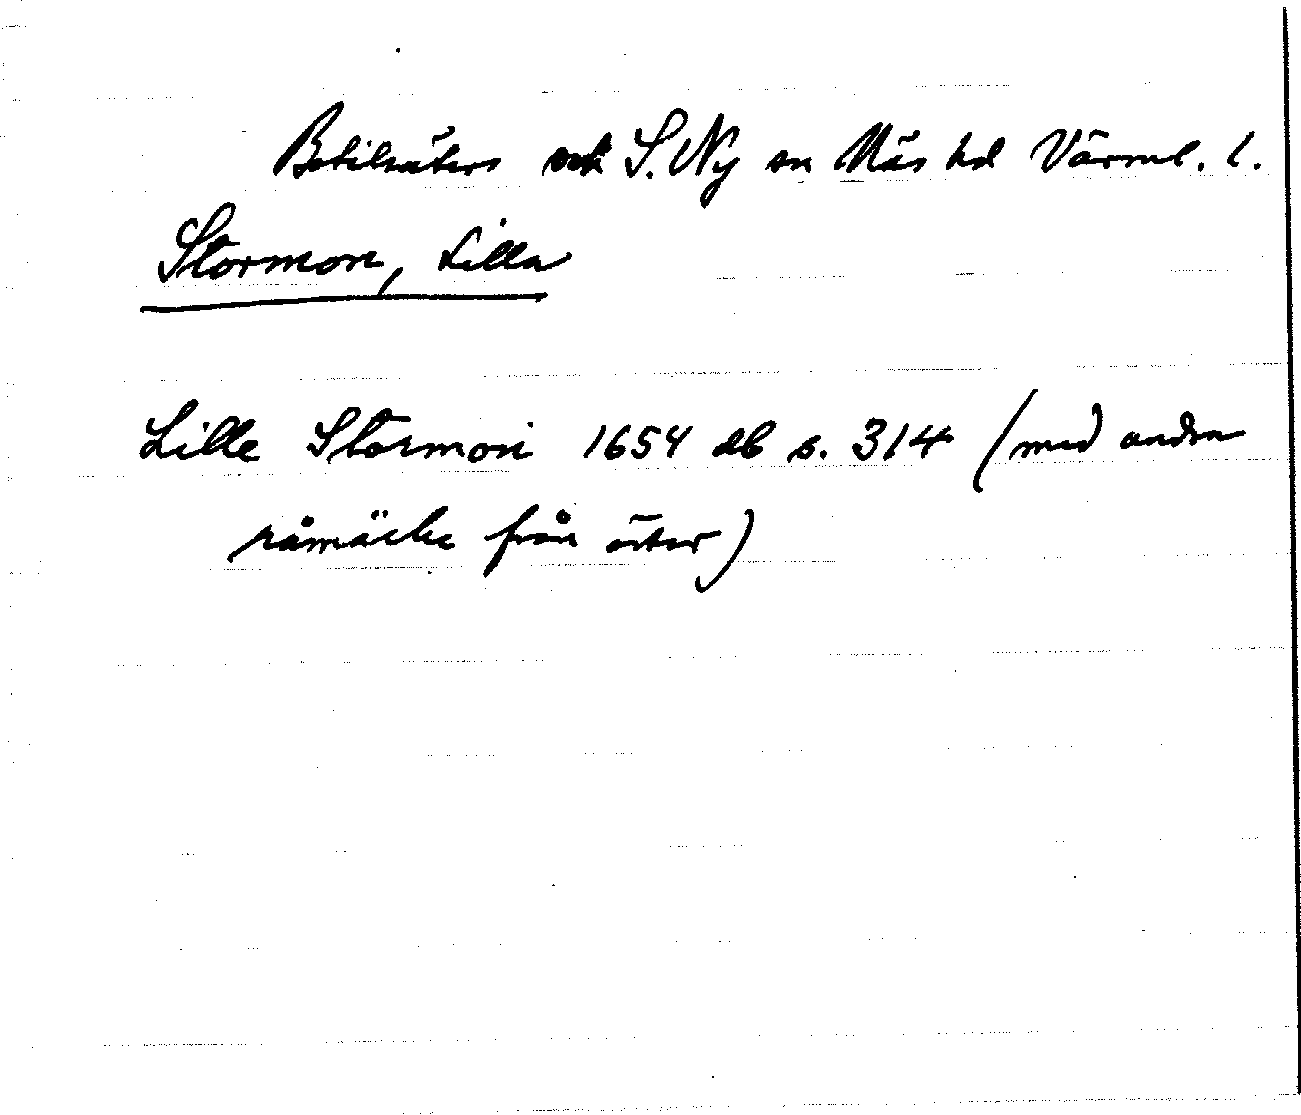 Botilsäters och S. Ny sn Näs hd Värml. l.
Stormon, Lilla
Lille Stormon 1654 db s. 314 (med andra
råmärke från öster)